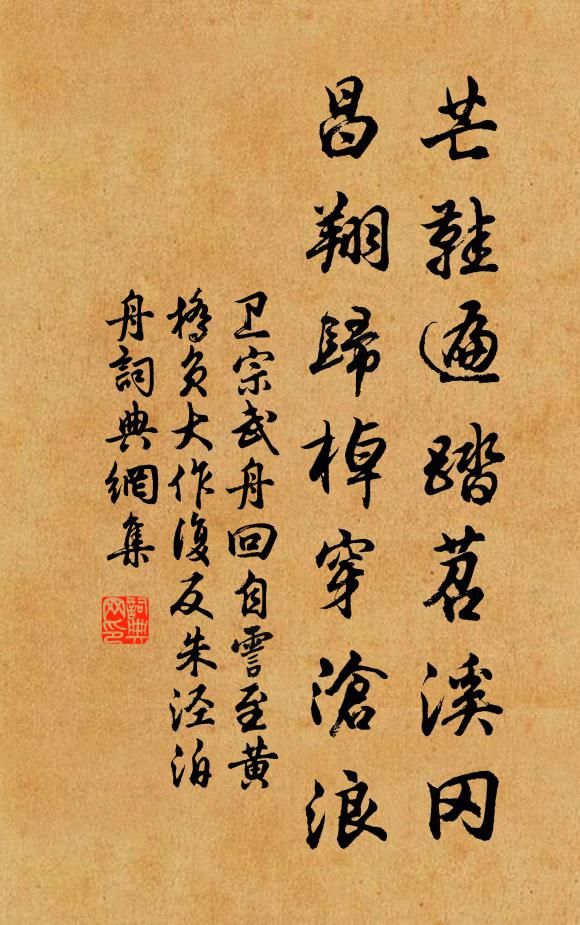 芒鞋遍踏苕溪冈
昌翔歸棹穿滄浪
卫宗武舟回自霅至黄
橋负大作復反朱泾泊
舟詞典網集
詞典
网印